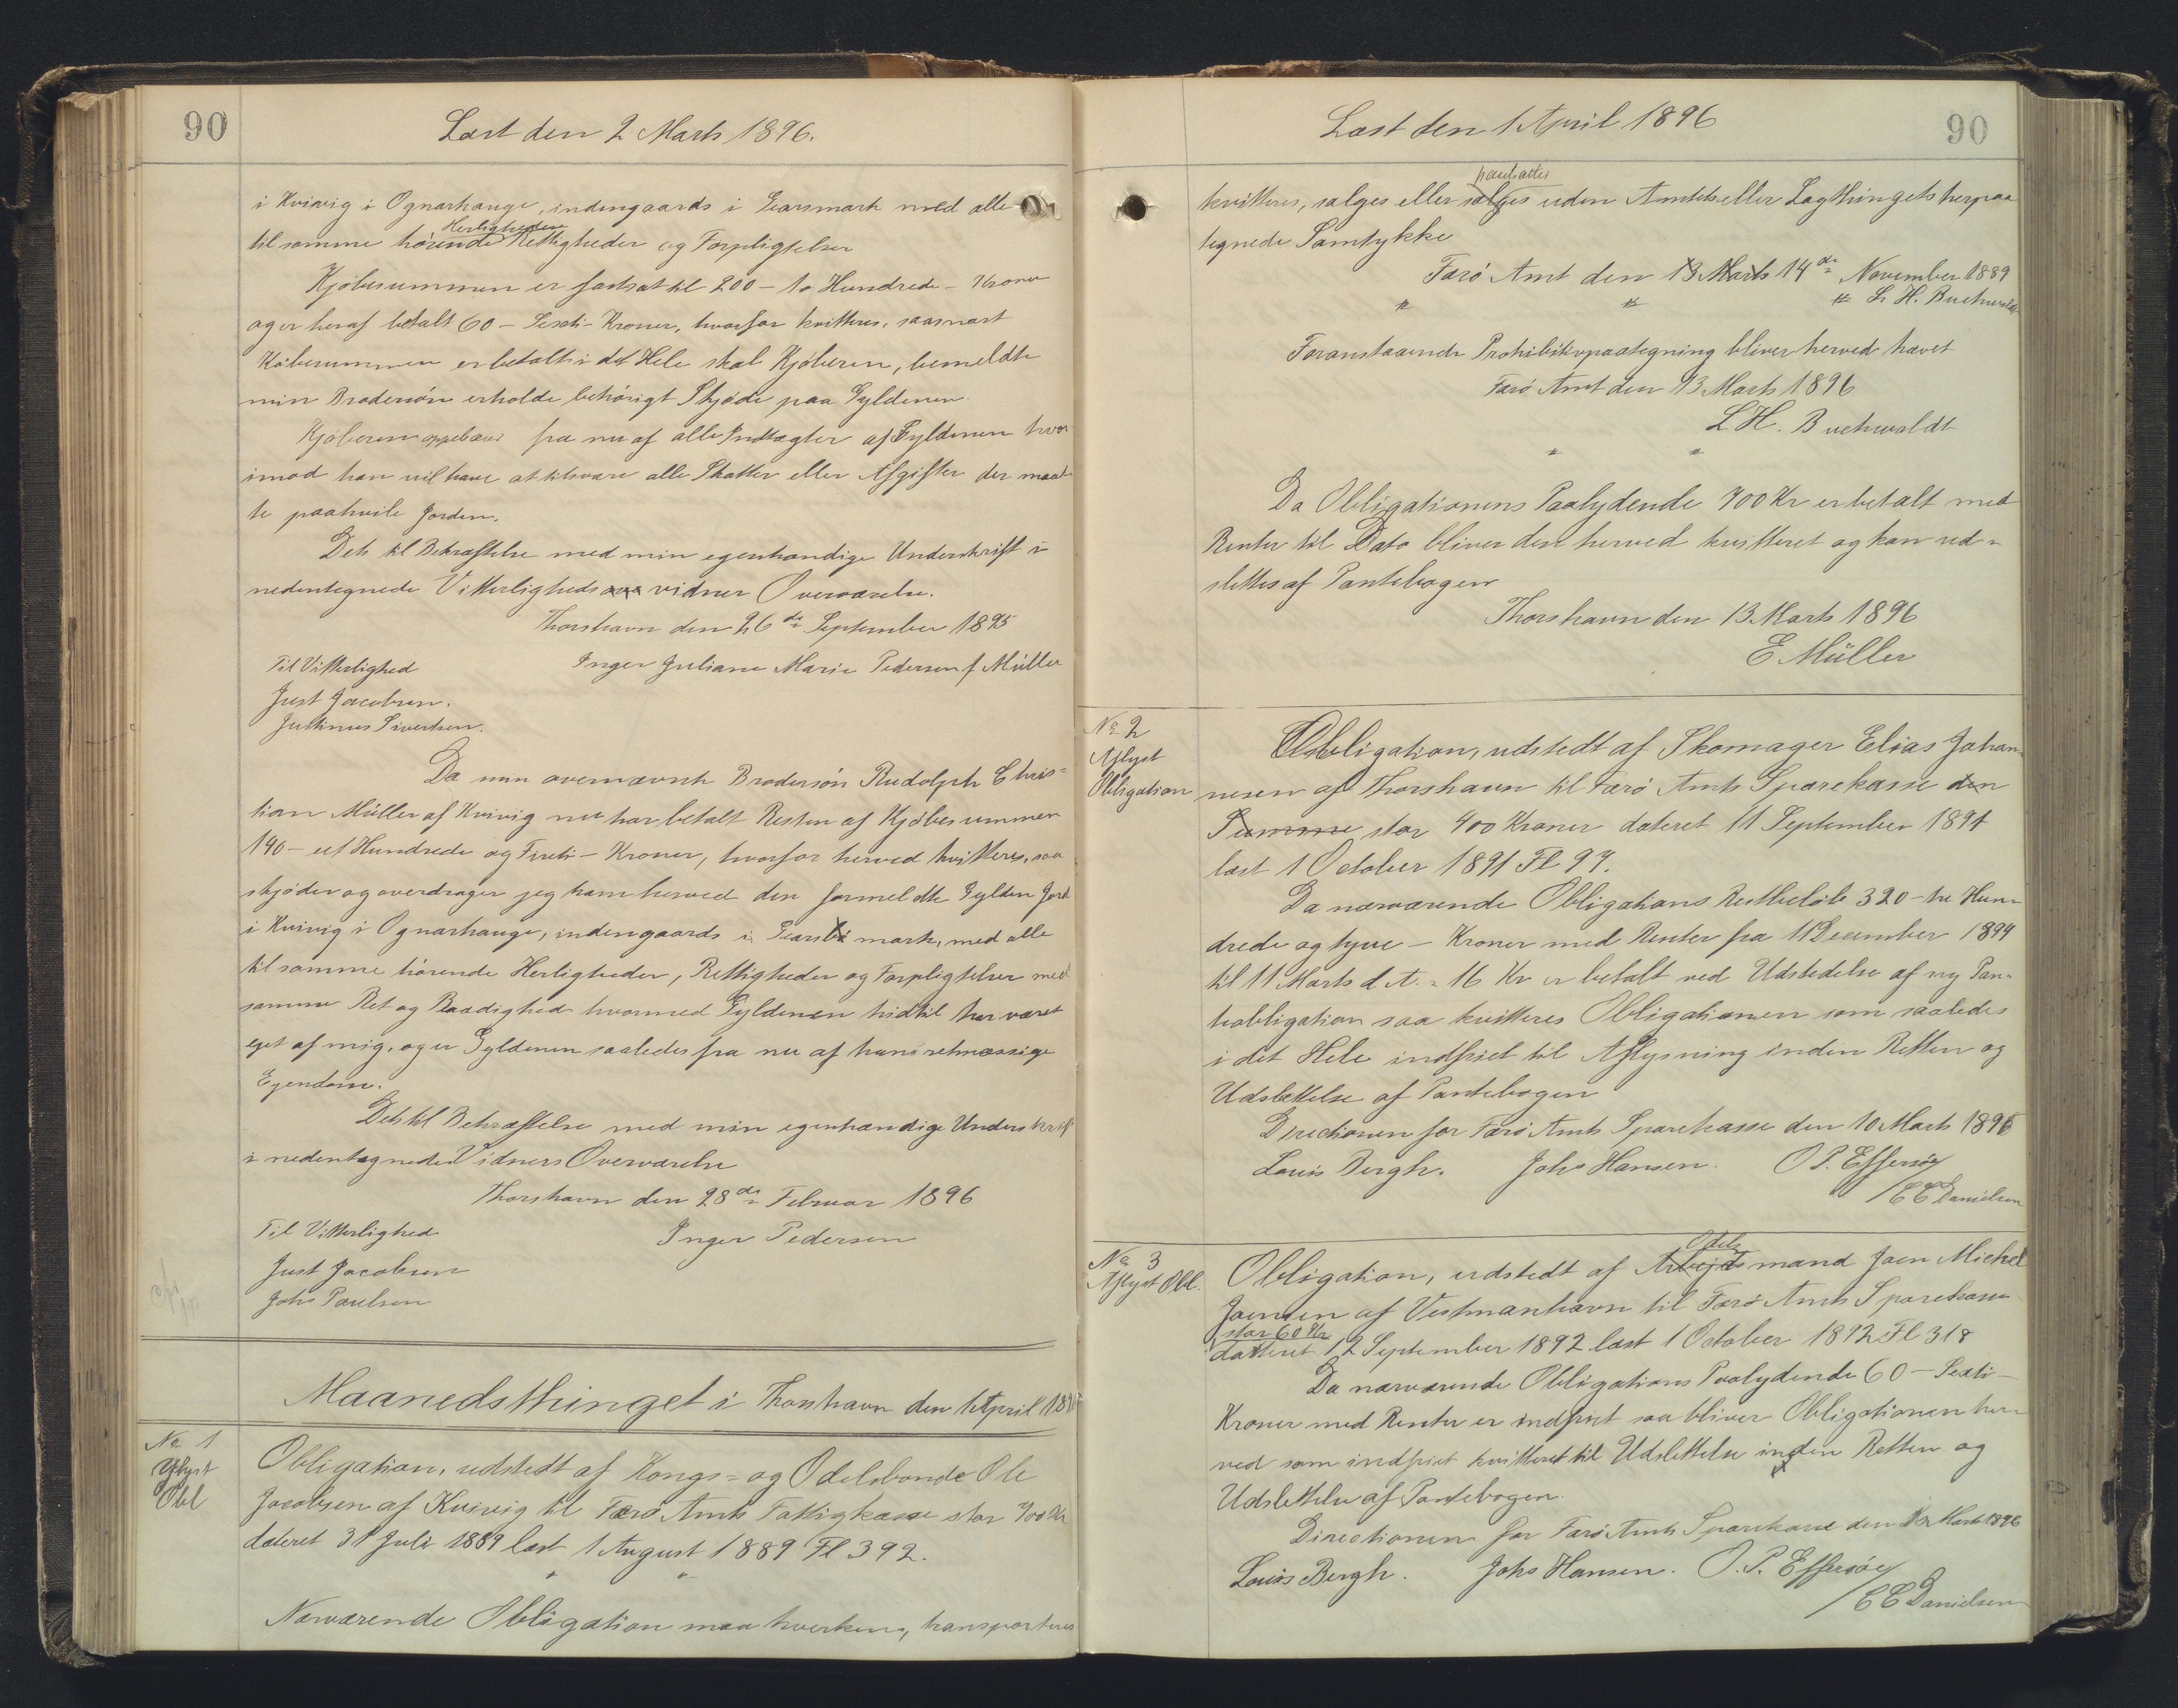 90
Læst den 2 Marts 1896.
i Kvivig i Ognarhauge, indengaards i Gearsmark med alle
Herligheder
til samme hörende Rettigheder og Forpligtelser
Kjöbesummen er fastsat til 200 - to Hundrede - Kroner
og er heraf betalt 60 - Sexti - Kroner, hvorfor kvitteres, saasnart
Köbesummen er betalt i det Hele skal Kjöberen, bemeldte
min Brodersön erholde behörigt Skjöde paa Gyldenen.
Kjöberen oppebærer fra nu af alle Indtægter af Gyldenen hvor
imod han vil have at tilsvare alle Skatter eller Afgifter der maat-
te paahvile Jorden.
Dets til Bekræftelse med min egenhændige Underskrift i
nedentegnede Vitterligheds vidner Overværelse.
Thorshavn den 26 de September 1895
Til Vitterlighed
Inger Juliane Marie Pedersen f. Müller
Just Jacobsen.
Justinus Sivertsen.
Da min overnævnte Brodersön Rudolph Chris=
tian Müller af Kvivig nu har betalt Resten af Kjöbesummen
140 - et Hundrede og Fireti - Kroner, hvorfor herved kvitteres, saa
skjöder og overdrager jeg ham herved den formeldte Gylden Jord
i Kvivig i Ognarhauge, indengaards i Gears mark, med alle
til samme hörende Herligheder, Rettigheder og Forpligtelser med
samme Ret og Raadighed hvormed Gyldenen hidtil har været
ejet af mig, og er Gyldenen saaledes fra nu af hans retmæssige
Ejendom.
Dets til Bekræftelse med min egenhændige Underskrift
i nedentegnede Vidners Overværelse
Thorshavn den 28 de Februar 1896
Til Vitterlighed
Inger Pedersen
Just Jacobsen
Johs Poulsen
Maanedsthinget i Thorshavn den 1 April 1896
No 1
Aflyst
Obl
Obligation, udstedt af Kongs= og Odelsbonde Ole
Jacobsen af Kvivig til Færö Amts Fattigkasse stor 700 Kr
dateret 31 Juli 1889 læst 1 August 1889 Fl 392.
" "
Nærværende Obligation maa hverken, transporteres
Læst den 1 April 1896
90
pantsættes
kvitteres, sælges eller sælges uden Amtets eller Lagthingets herpaa
tegnede Samtykke
Færö Amt den 13 Marts 14 de November 1889
" " " L. H. Buchwaldt
Foranstaaende Prohibitivpaategning bliver herved hævet
Færö Amt den 13 Marts 1896
L H. Buchwaldt
" "
Da Obligationens Paalydende 700 Kr er betalt med
Renter til Dato bliver den herved kvitteret og kan ud=
slettes af Pantebogen
Thorshavn den 13 Marts 1896
E. Müller
No 2
Aflyst
Obligation
Obligation, udstedt af Skomager Elias Johan-
nesen af Thorshavn til Færö Amts Sparekasse den
Summe stor 400 Kroner dateret 11 September 1891
læst 1 October 1891 Fl 97.
Da nærværende Obligations Restbelöb 320 - tre Hun-
drede og tyve - Kroner med Renter fra 11 December 1894
til 11 Marts d. A. = 16 Kr er betalt ved Udstedelse af ny Pan-
teobligation saa kvitteres Obligationen som saaledes
i det Hele indfriet til Aflysning inden Retten og
Udslettelse af Pantebogen
Directionen for Færö Amts Sparekasse den 10 Marts 1896
Louis Bergh. Johs Hansen. O P. Effersöe
/ E C Danielsen
No 3
Aflyst Obl.
Odels
Obligation, udstedt af Arbejdsmand Joen Michel
Joensen af Vestmanhavn til Færö Amts Sparekasse
stor 60 Kr
datteret 12 September 1892 læst 1 October 1892 Fl 318
Da nærværende Obligations Paalydende 60 - Sexti -
Kroner med Renter er indfriet saa bliver Obligationen her-
ved som indfriet kvitteret til Udslettelse inden Retten og
Udslettelse af Pantebogen.
Directionen for Færö Amts Sparekasse den 12 Marts 1896
Louis Bergh. Johs Hansen. O. P. Effersöe
/ E C Danielsen